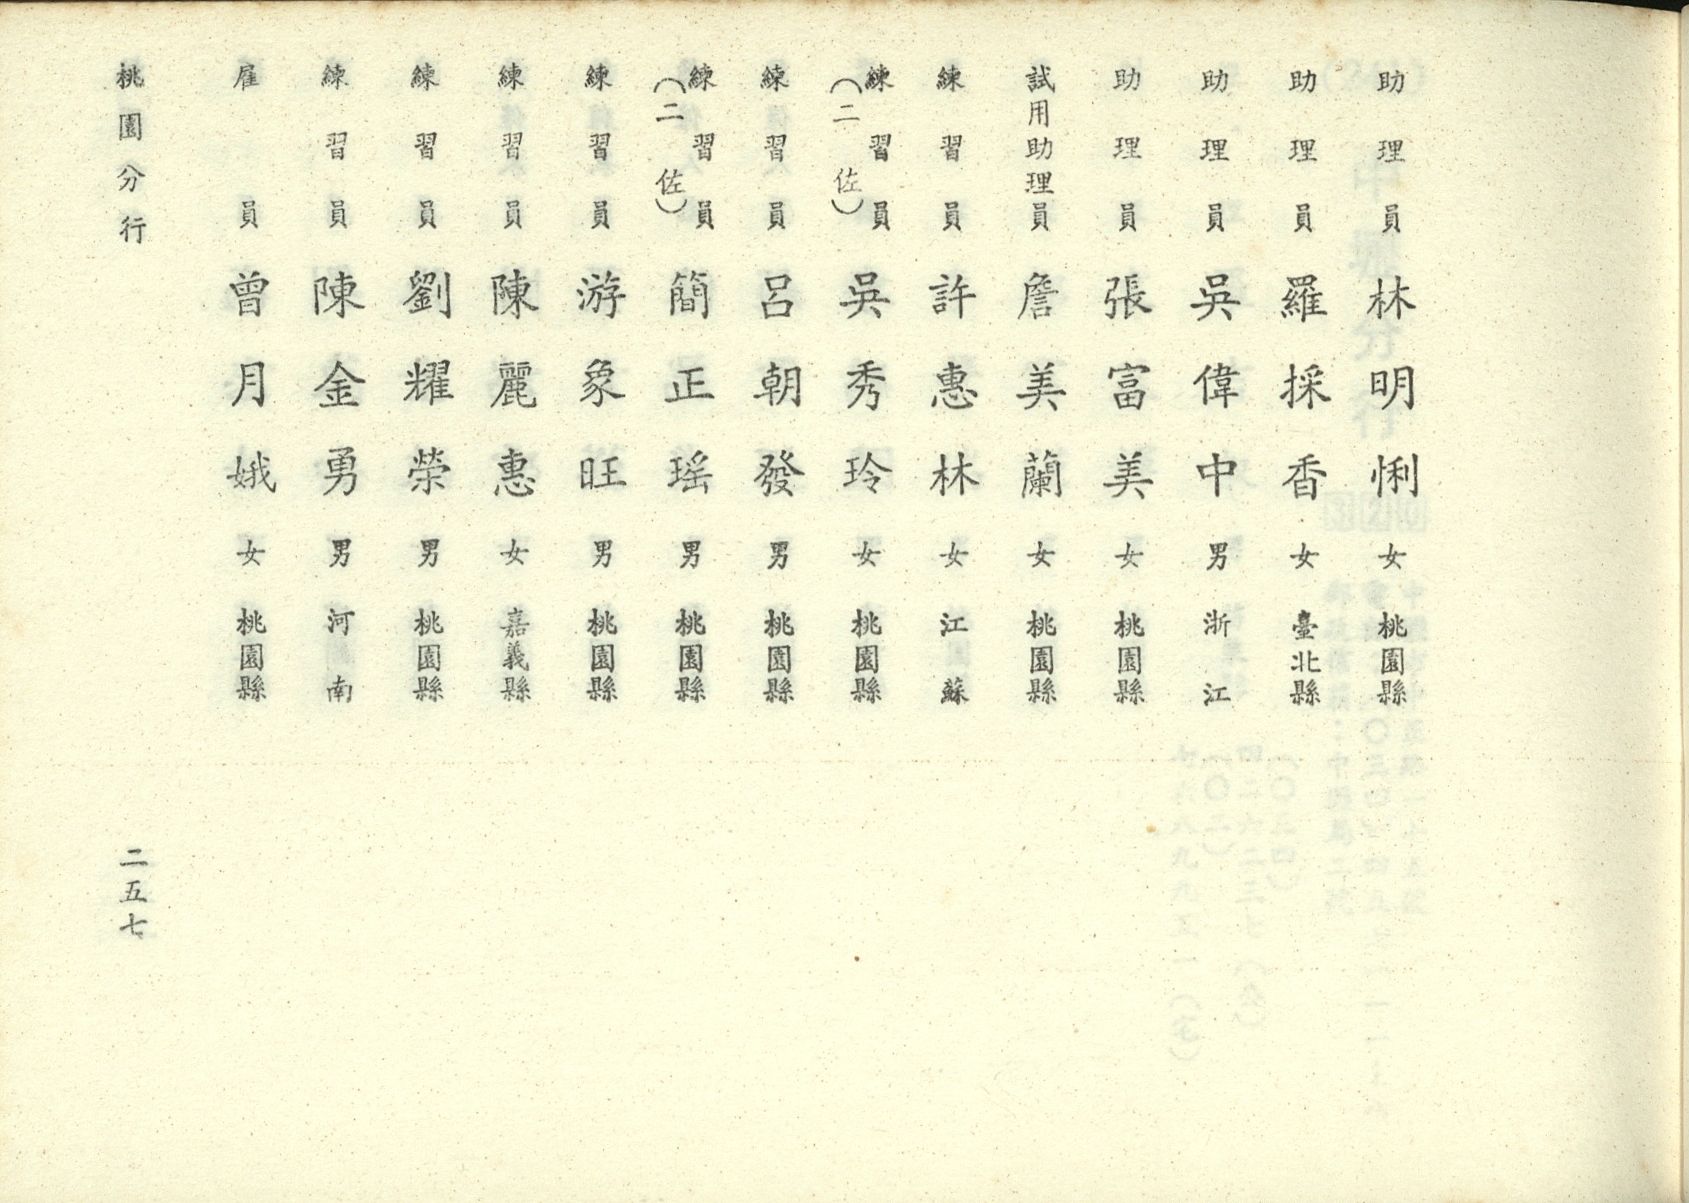 助理員 林明悧 女 桃園縣
助理員 羅採香 女 臺北縣
助理員 吳偉中 男 浙江
助理員 張富美 女 桃園縣
試用助理員 詹美蘭 女 桃園縣
練習員 許惠林 女 江蘇
練習員(二佐) 吳秀玲 女 桃園縣
練習員 呂朝發 男 桃園縣
練習員(二佐) 簡正瑤 男 桃園縣
練習員 游象旺 男 桃園縣
練習員 陳麗惠 女 嘉義縣
練習員 劉耀榮 男 桃園縣
練習員 陳金勇 男 河南
雇員 曾月娥 女 桃園縣
桃園分行 二五七